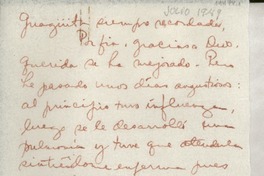 JULIO 1949
siempre recordada,
Por fin, gracias a Dios,
querida se ha mejorado. Pero
he pasado unos días angustiosos:
al principio tuvo influenza,
luego se le desarrolló una
pulmonía y tuve que atenderla
sintiéndome enferma pues